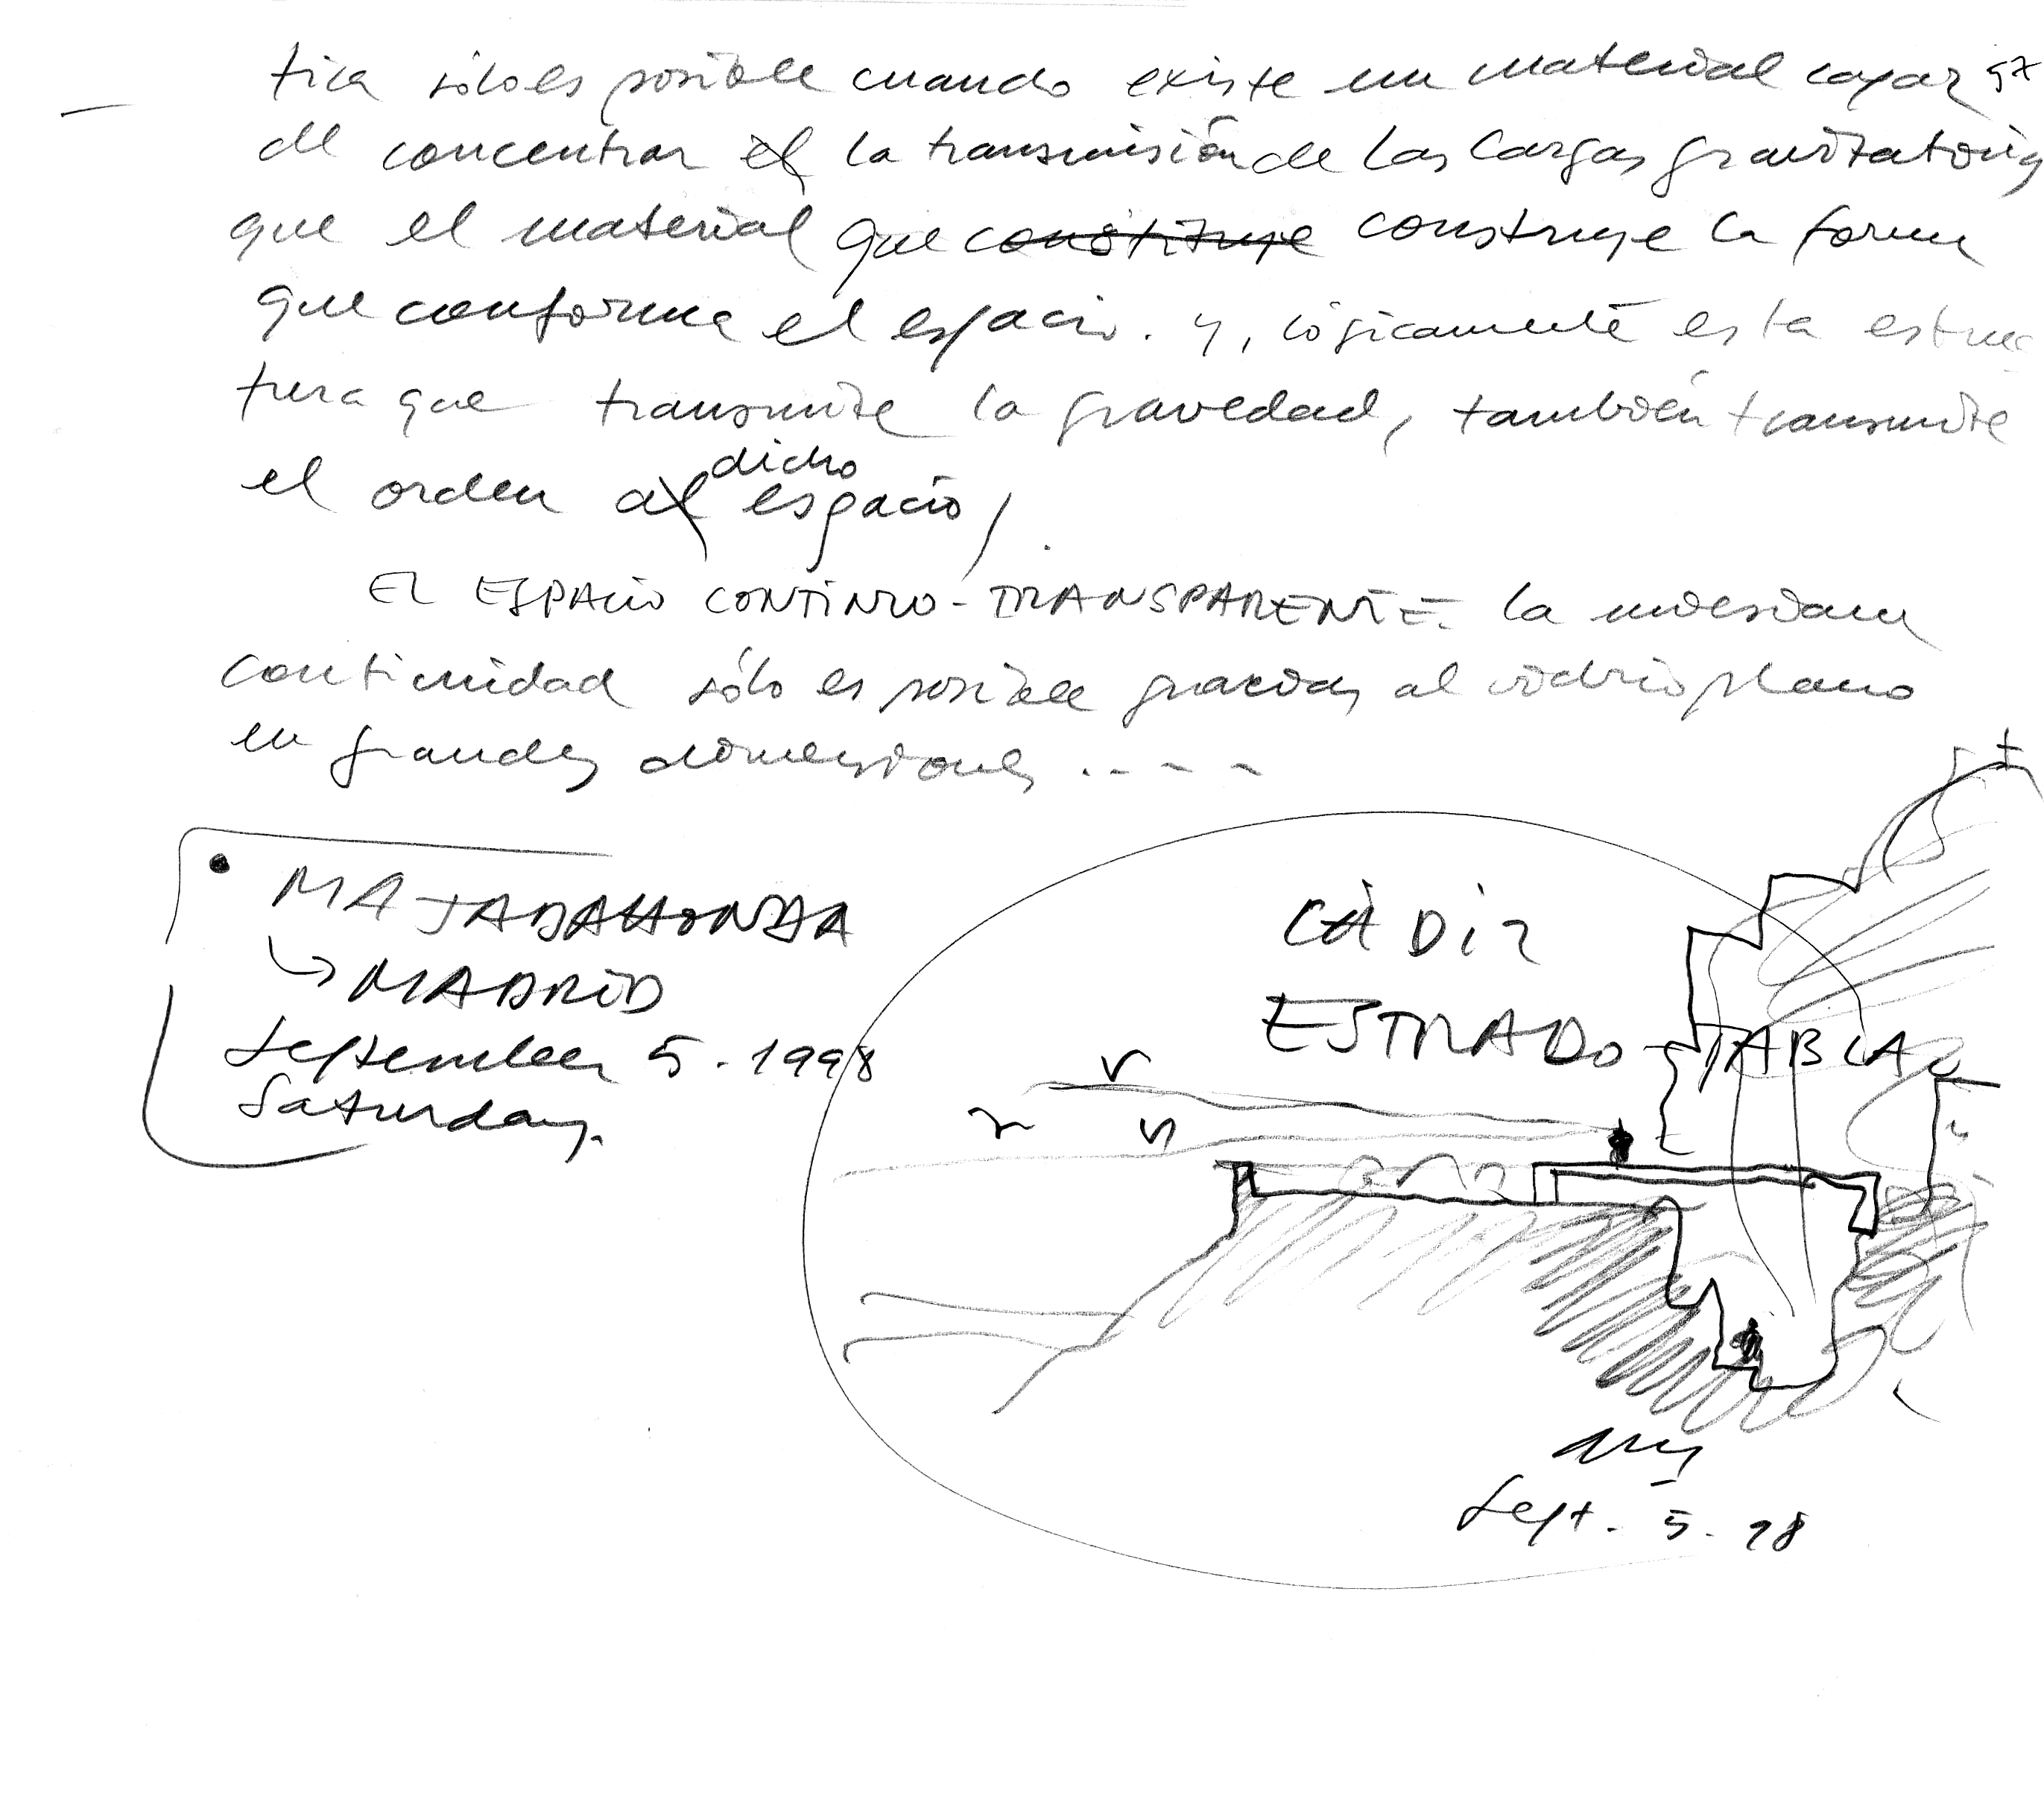 tica sólo es posible cuando existe un material capaz
de concentrar el la transmisión de las cargas gravitatorias
que el material que constituye construye la forma
que conforma el espacio. y, lógicamente esta estruc
tura que transmite la gravedad, también transmite
el orden al dicho espacio
EL ESPACIO CONTINUO-TRANSPARENTE. la miesiana
continuidad sólo es posible gracias al vidrio plano
en grandes dimensiones . - - -
• MAJADAHONDA
↳ MADRID
September 5. 1998
Saturday.
CÁDIZ
ESTRADO-TABLA
Sept. 5. 98